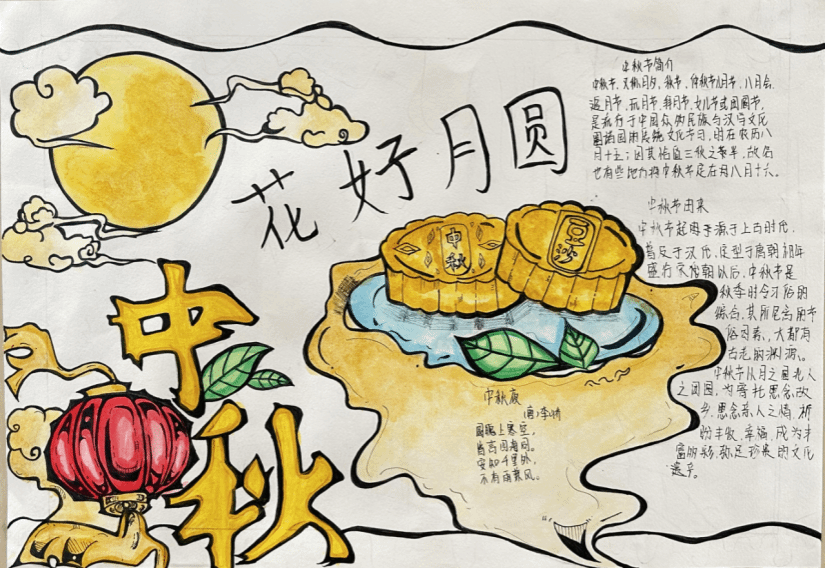 花好月圆
中秋
中秋
豆沙
中秋节简介
中秋节,又称月夕,秋节,仲秋节,八月节,八月会,
追月节,玩月节,拜月节,女儿节或团圆节,
是流行于中国众多民族与汉字文化
圈诸国的传统文化节日,时在农历八
月十五;因其恰值三秋之半,故名
也有些地方将中秋节定在八月十六。
中秋节由来
中秋节起源于上古时代,
普及于汉代,定型于唐朝初年
盛行宋朝以后,中秋节是
秋季时令习俗的
综合,其所包含的节
俗因素,大都有
古老的渊源。
中秋节以月之圆兆人
之团圆,为寄托思念故
乡,思念亲人之情,祈
盼丰收、幸福,成为丰
富多彩、弥足珍贵的文化
遗产。
中秋夜
李峤
圆魄上寒空,
皆言四海同。
安知千里外,
不有雨兼风。